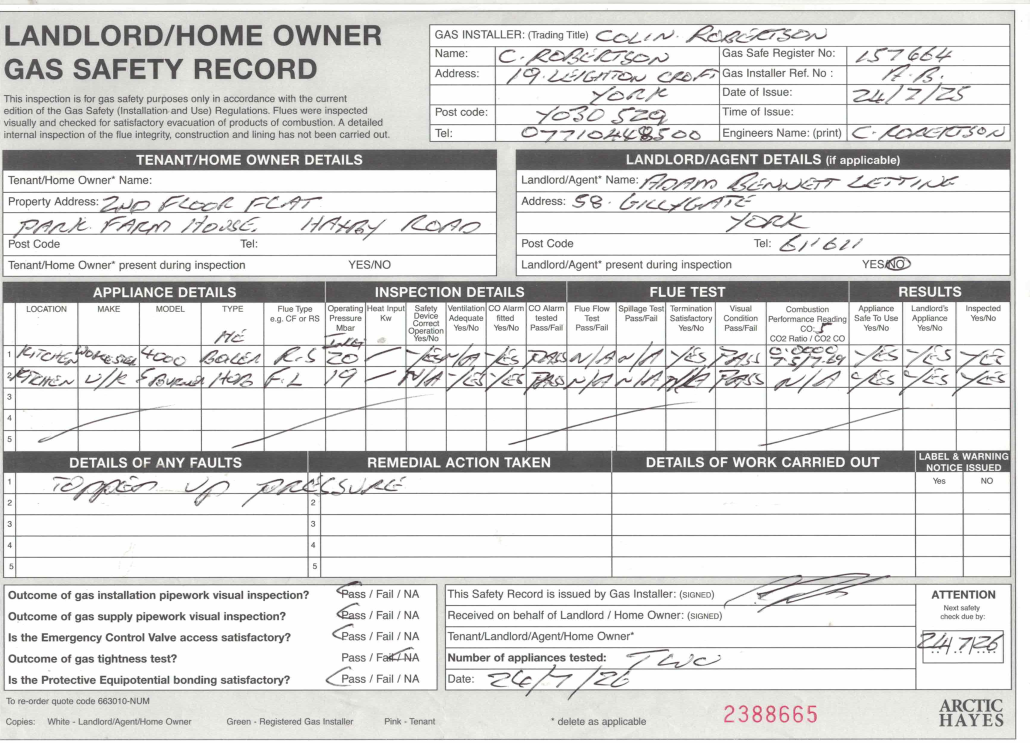 LANDLORD/HOME OWNER
GAS SAFETY RECORD
This inspection is for gas safety purposes only in accordance with the current
edition of the Gas Safety (Installation and Use) Regulations. Flues were inspected
visually and checked for satisfactory evacuation of products of combustion. A detailed
internal inspection of the flue integrity, construction and lining has not been carried out.
GAS INSTALLER: (Trading Title) COLIN. ROBERTSON
Name: C. ROBERTSON Gas Safe Register No: 157664
Address: 19. LEIGHTON CROFT Gas Installer Ref. No : A.B.
YORK Date of Issue: 24/7/25
Post code: YO30 5ZQ Time of Issue:
Tel: 07710448500 Engineers Name: (print) C. ROBERTSON
TENANT/HOME OWNER DETAILS
Tenant/Home Owner* Name:
Property Address: 2ND FLOOR FLAT
PARK FARM HOUSE. HAXBY ROAD
Post Code Tel:
Tenant/Home Owner* present during inspection YES/NO
LANDLORD/AGENT DETAILS (if applicable)
Landlord/Agent* Name: ADAM BENNETT LETTING
Address: 58. GILLYGATE
YORK
Post Code Tel: 611611
Landlord/Agent* present during inspection YES/NO
APPLIANCE DETAILS INSPECTION DETAILS FLUE TEST RESULTS
LOCATION MAKE MODEL TYPE Flue Type e.g. CF or RS Operating Pressure Mbar Heat Input Kw Safety Device Correct Operation Yes/No Ventilation Adequate Yes/No CO Alarm fitted Yes/No CO Alarm tested Pass/Fail Flue Flow Test Pass/Fail Spillage Test Pass/Fail Termination Satisfactory Yes/No Visual Condition Pass/Fail Combustion Performance Reading CO: 5 CO2 Ratio / CO2 CO Appliance Safe To Use Yes/No Landlord's Appliance Yes/No Inspected Yes/No
HE INLET
1 KITCHEN WORCESTER 4000 BOILER R.S 20 YES N/A YES PASS N/A N/A YES PASS YES YES YES
2 KITCHEN U/K 5 BURNER HOB F.L 19 N/A YES YES PASS N/A N/A N/A PASS N/A YES YES YES
3
4
5
DETAILS OF ANY FAULTS REMEDIAL ACTION TAKEN DETAILS OF WORK CARRIED OUT LABEL & WARNING NOTICE ISSUED
Yes NO
1 TOPPED UP PRESSURE
2 2
3 3
4 4
5 5
Outcome of gas installation pipework visual inspection? Pass / Fail / NA
Outcome of gas supply pipework visual inspection? Pass / Fail / NA
Is the Emergency Control Valve access satisfactory? Pass / Fail / NA
Outcome of gas tightness test? Pass / Fail / NA
Is the Protective Equipotential bonding satisfactory? Pass / Fail / NA
This Safety Record is issued by Gas Installer: (SIGNED)
Received on behalf of Landlord / Home Owner: (SIGNED)
Tenant/Landlord/Agent/Home Owner*
Number of appliances tested: TWO
Date: 24/7/26
ATTENTION
Next safety
check due by:
24.7/26
To re-order quote code 663010-NUM
Copies: White - Landlord/Agent/Home Owner Green - Registered Gas Installer Pink - Tenant * delete as applicable 2388665
ARCTIC
HAYES